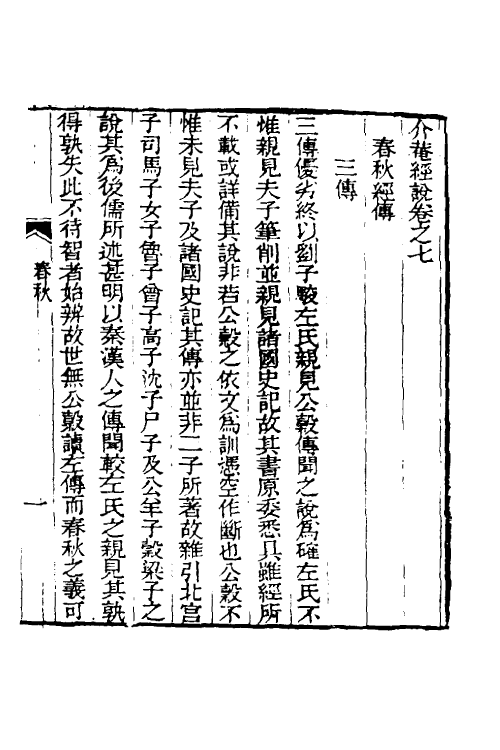 介菴經說卷之七
春秋經傳
三傳
三傳優劣終以劉子駿左氏親見公穀傳聞之說為確左氏不
惟親見夫子筆削並親見諸國史記故其書原委悉具雖經所
不載或詳備其說非若公穀之依文為訓憑空作斷也公穀不
惟未見夫子及諸國史記其傳亦並非二子所著故雜引北宮
子司馬子女子魯子曾子高子沈子尸子及公羊子穀梁子之
說其為後儒所述甚明以秦漢人之傳聞較左氏之親見其孰
得孰失此不待智者始辨故世無公穀讀左傳而春秋之義可
春秋
一